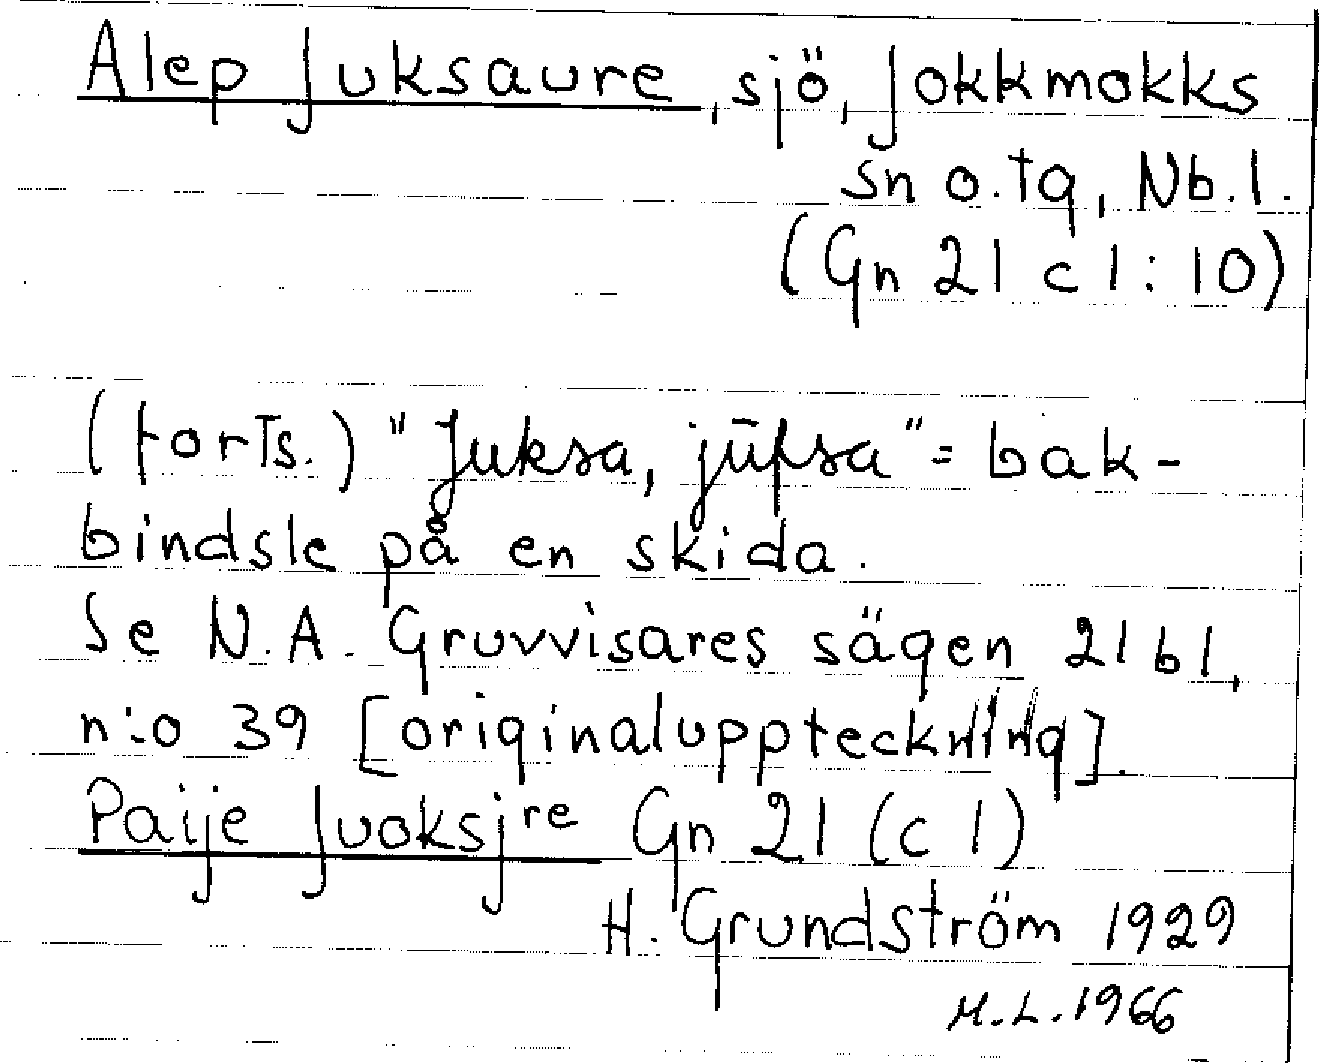 Alep Juksaure, sjö, Jokkmokks
sn o. tg, Nb. l.
(Gn 21 c 1:10)
(forts.) "Juksa, jūfsa" = bak-
bindsle på en skida.
Se N.A. Gruvvisares sägen 21 b 1,
n:o 39 [originaluppteckning].
Paije Juoksjre Gn 21 (c 1)
H. Grundström 1929
M.L. 1966